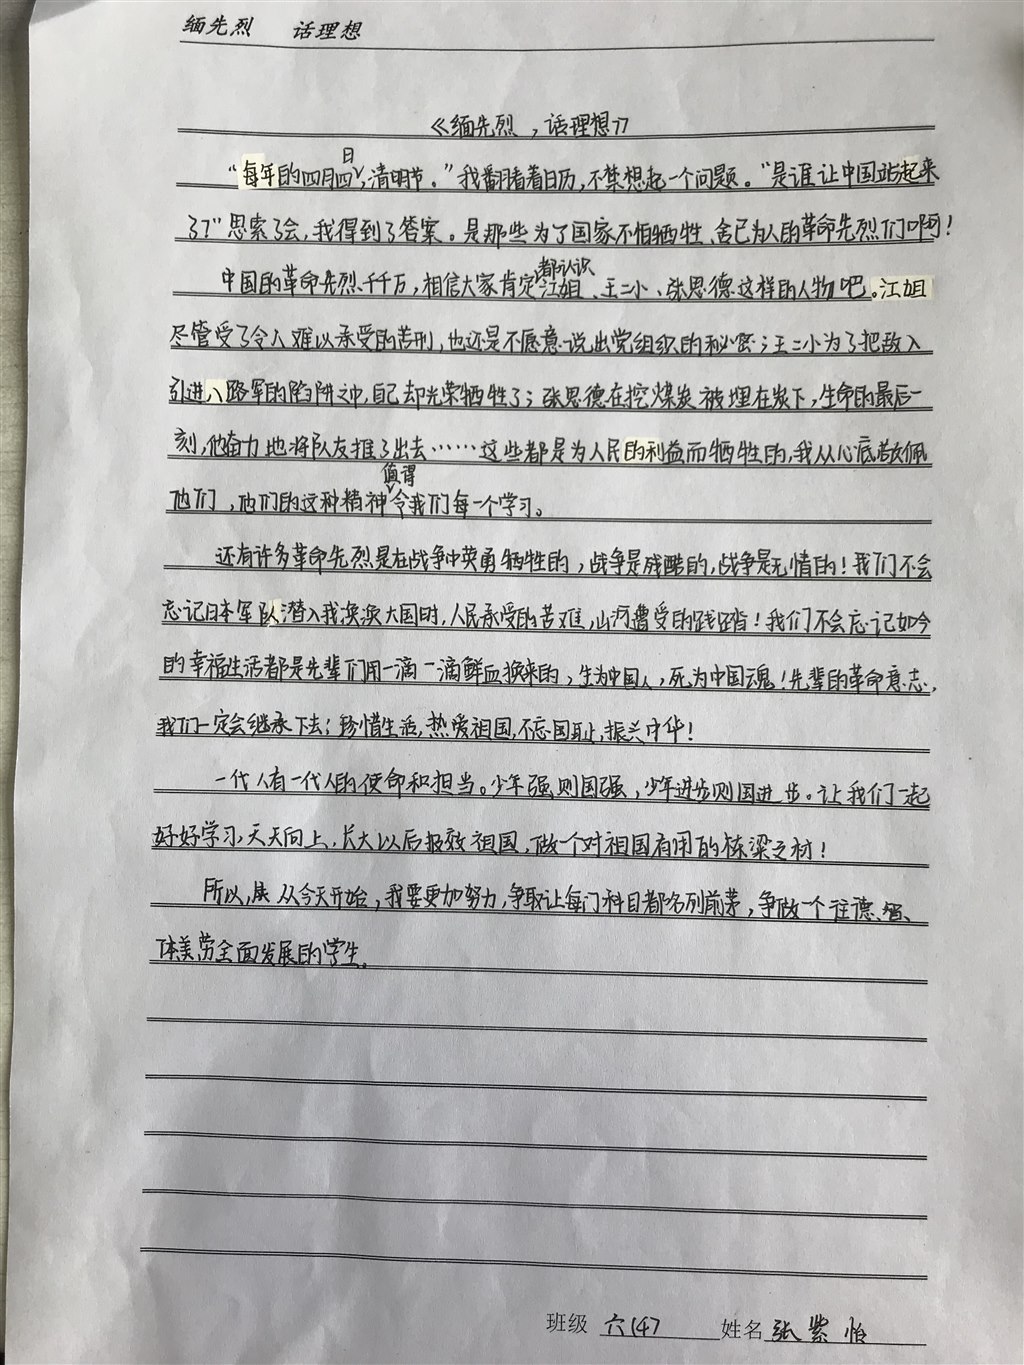 缅先烈 话理想
《缅先烈，话理想》
日
“每年的四月四，清明节。”我翻看着日历，不禁想起一个问题。“是谁让中国站起来
了？”思索了会，我得到了答案。是那些为了国家不怕牺牲、舍己为人的革命先烈们啊！
都认识
中国的革命先烈千千万，相信大家肯定江姐、王二小、张思德这样的人物吧。江姐
尽管受了令人难以承受的苦刑，也还是不愿意说出党组织的秘密；王二小为了把敌人
引进八路军的陷阱之中，自己却光荣牺牲了；张思德在挖煤炭被埋在炭下，生命的最后一
刻，他奋力地将队友推了出去……这些都是为人民的利益而牺牲的，我从心底敬佩
值得
他们，他们的这种精神令我们每一个学习。
还有许多革命先烈是在战争中英勇牺牲的，战争是残酷的，战争是无情的！我们不会
忘记日本军队潜入我泱泱大国时，人民承受的苦难，山河遭受的践踏！我们不会忘记如今
的幸福生活都是先辈们用一滴一滴鲜血换来的，生为中国人，死为中国魂！先辈的革命意志，
我们一定会继承下去；珍惜生活，热爱祖国，不忘国耻，振兴中华！
一代人有一代人的使命和担当。少年强则国强，少年进步则国进步。让我们一起
好好学习，天天向上，长大以后报效祖国，做一个对祖国有用的栋梁之材！
所以，从今天开始，我要更加努力，争取让每门科目都名列前茅，争做一个德、智、
体美劳全面发展的学生。
班级 六147 姓名 张紫怡